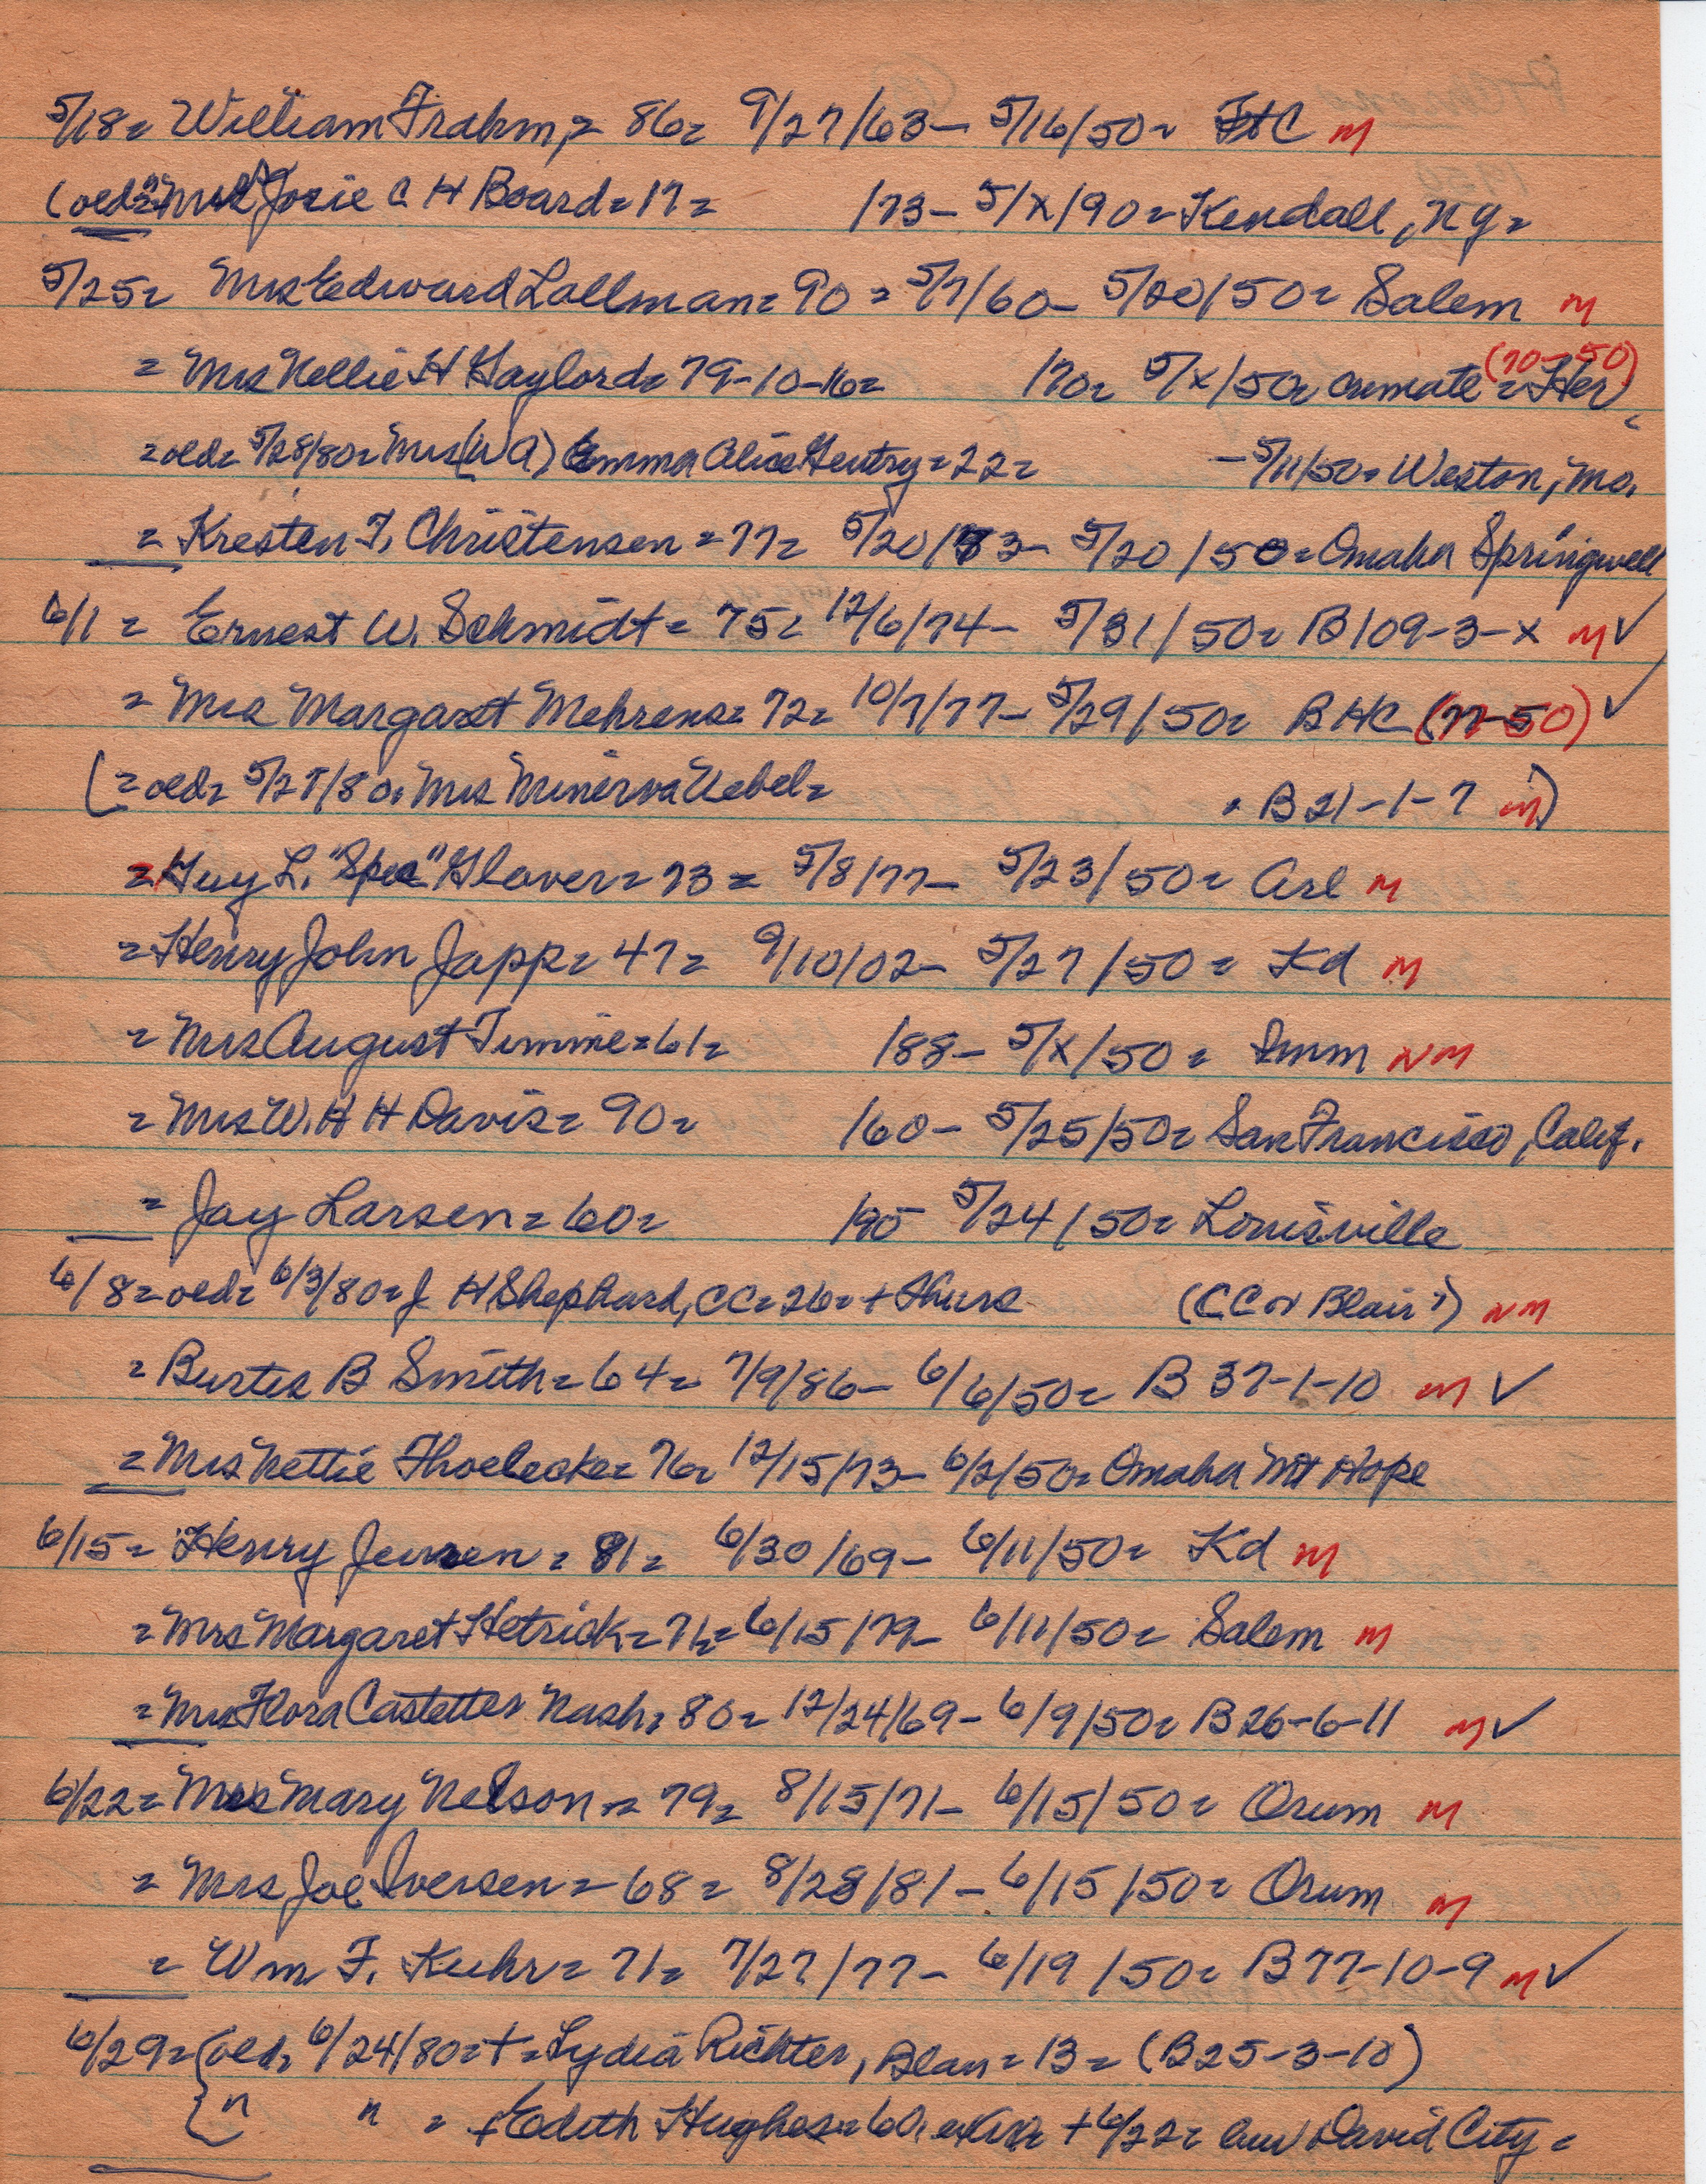 5/18= William Frahm,= 86= 9/27/63- 5/16/50= FtC M
(old= " Mrs Josie C H Board=17= 173- 5/x/90=Kendall, NY=
5/25= Mrs Edward Lallman= 90= 5/7/60- 5/20/50= Salem M
= Mrs Nellie H Gaylord= 79-10-16= 170= 5/x/50= cremate = Her (70-50)
=old= 5/28/80=Mrs(W A) Emma Alice Gentry=22= -5/11/50= Weston, Mo.
= Kresten F. Christensen=77= 5/20/73- 5/20/50=Omaha Springwell
6/1 = Ernest W. Schmidt= 75= 12/6/74- 5/31/50= B109-3-x M ✓
= Mrs Margaret Mehrens= 72= 10/7/77- 5/29/50= BHC (77-50) ✓
(=old= 5/27/80. Mrs Minerva Uebel= . B21-1-7 M)
=Guy L. "Spec" Glover=73= 5/8/77- 5/23/50= Arl M
=Henry John Japp= 47= 9/10/02- 5/27/50= Kd M
= Mrs August Timme=61= 188- 5/x/50= Imm NM
= Mrs W. H H Davis= 90= 160- 5/25/50= San Francisco, Calif.
= Jay Larsen=60= 190- 5/24/50= Louisville
6/8=old= 6/3/80=J H Shephard, CC=26=+Thurs (CC or Blair?) NM
=Burtis B Smith=64= 7/9/86- 6/6/50= B 37-1-10 M ✓
=Mrs Nettie Thoelecke= 76= 12/15/73- 6/2/50=Omaha Mt Hope
6/15= Henry Jensen= 81= 6/30/69- 6/11/50= Kd M
=Mrs Margaret Hetrick=71=6/15/79- 6/11/50= Salem M
=Mrs Flora Castetter Nash=80= 12/24/69- 6/9/50= B26-6-11 M ✓
6/22= Mrs Mary Nelson= 79= 8/15/71- 6/15/50= Orum M
= Mrs Joe Iversen= 68= 8/28/81- 6/15/50= Orum M
= Wm F. Kuhr= 71= 7/27/77- 6/19/50= B77-10-9 M ✓
6/29={old= 6/24/80=+=Lydia Richter, Blair=13= (B25-3-10)
{" " = +Edith Hughes=60. +6/22= David City=